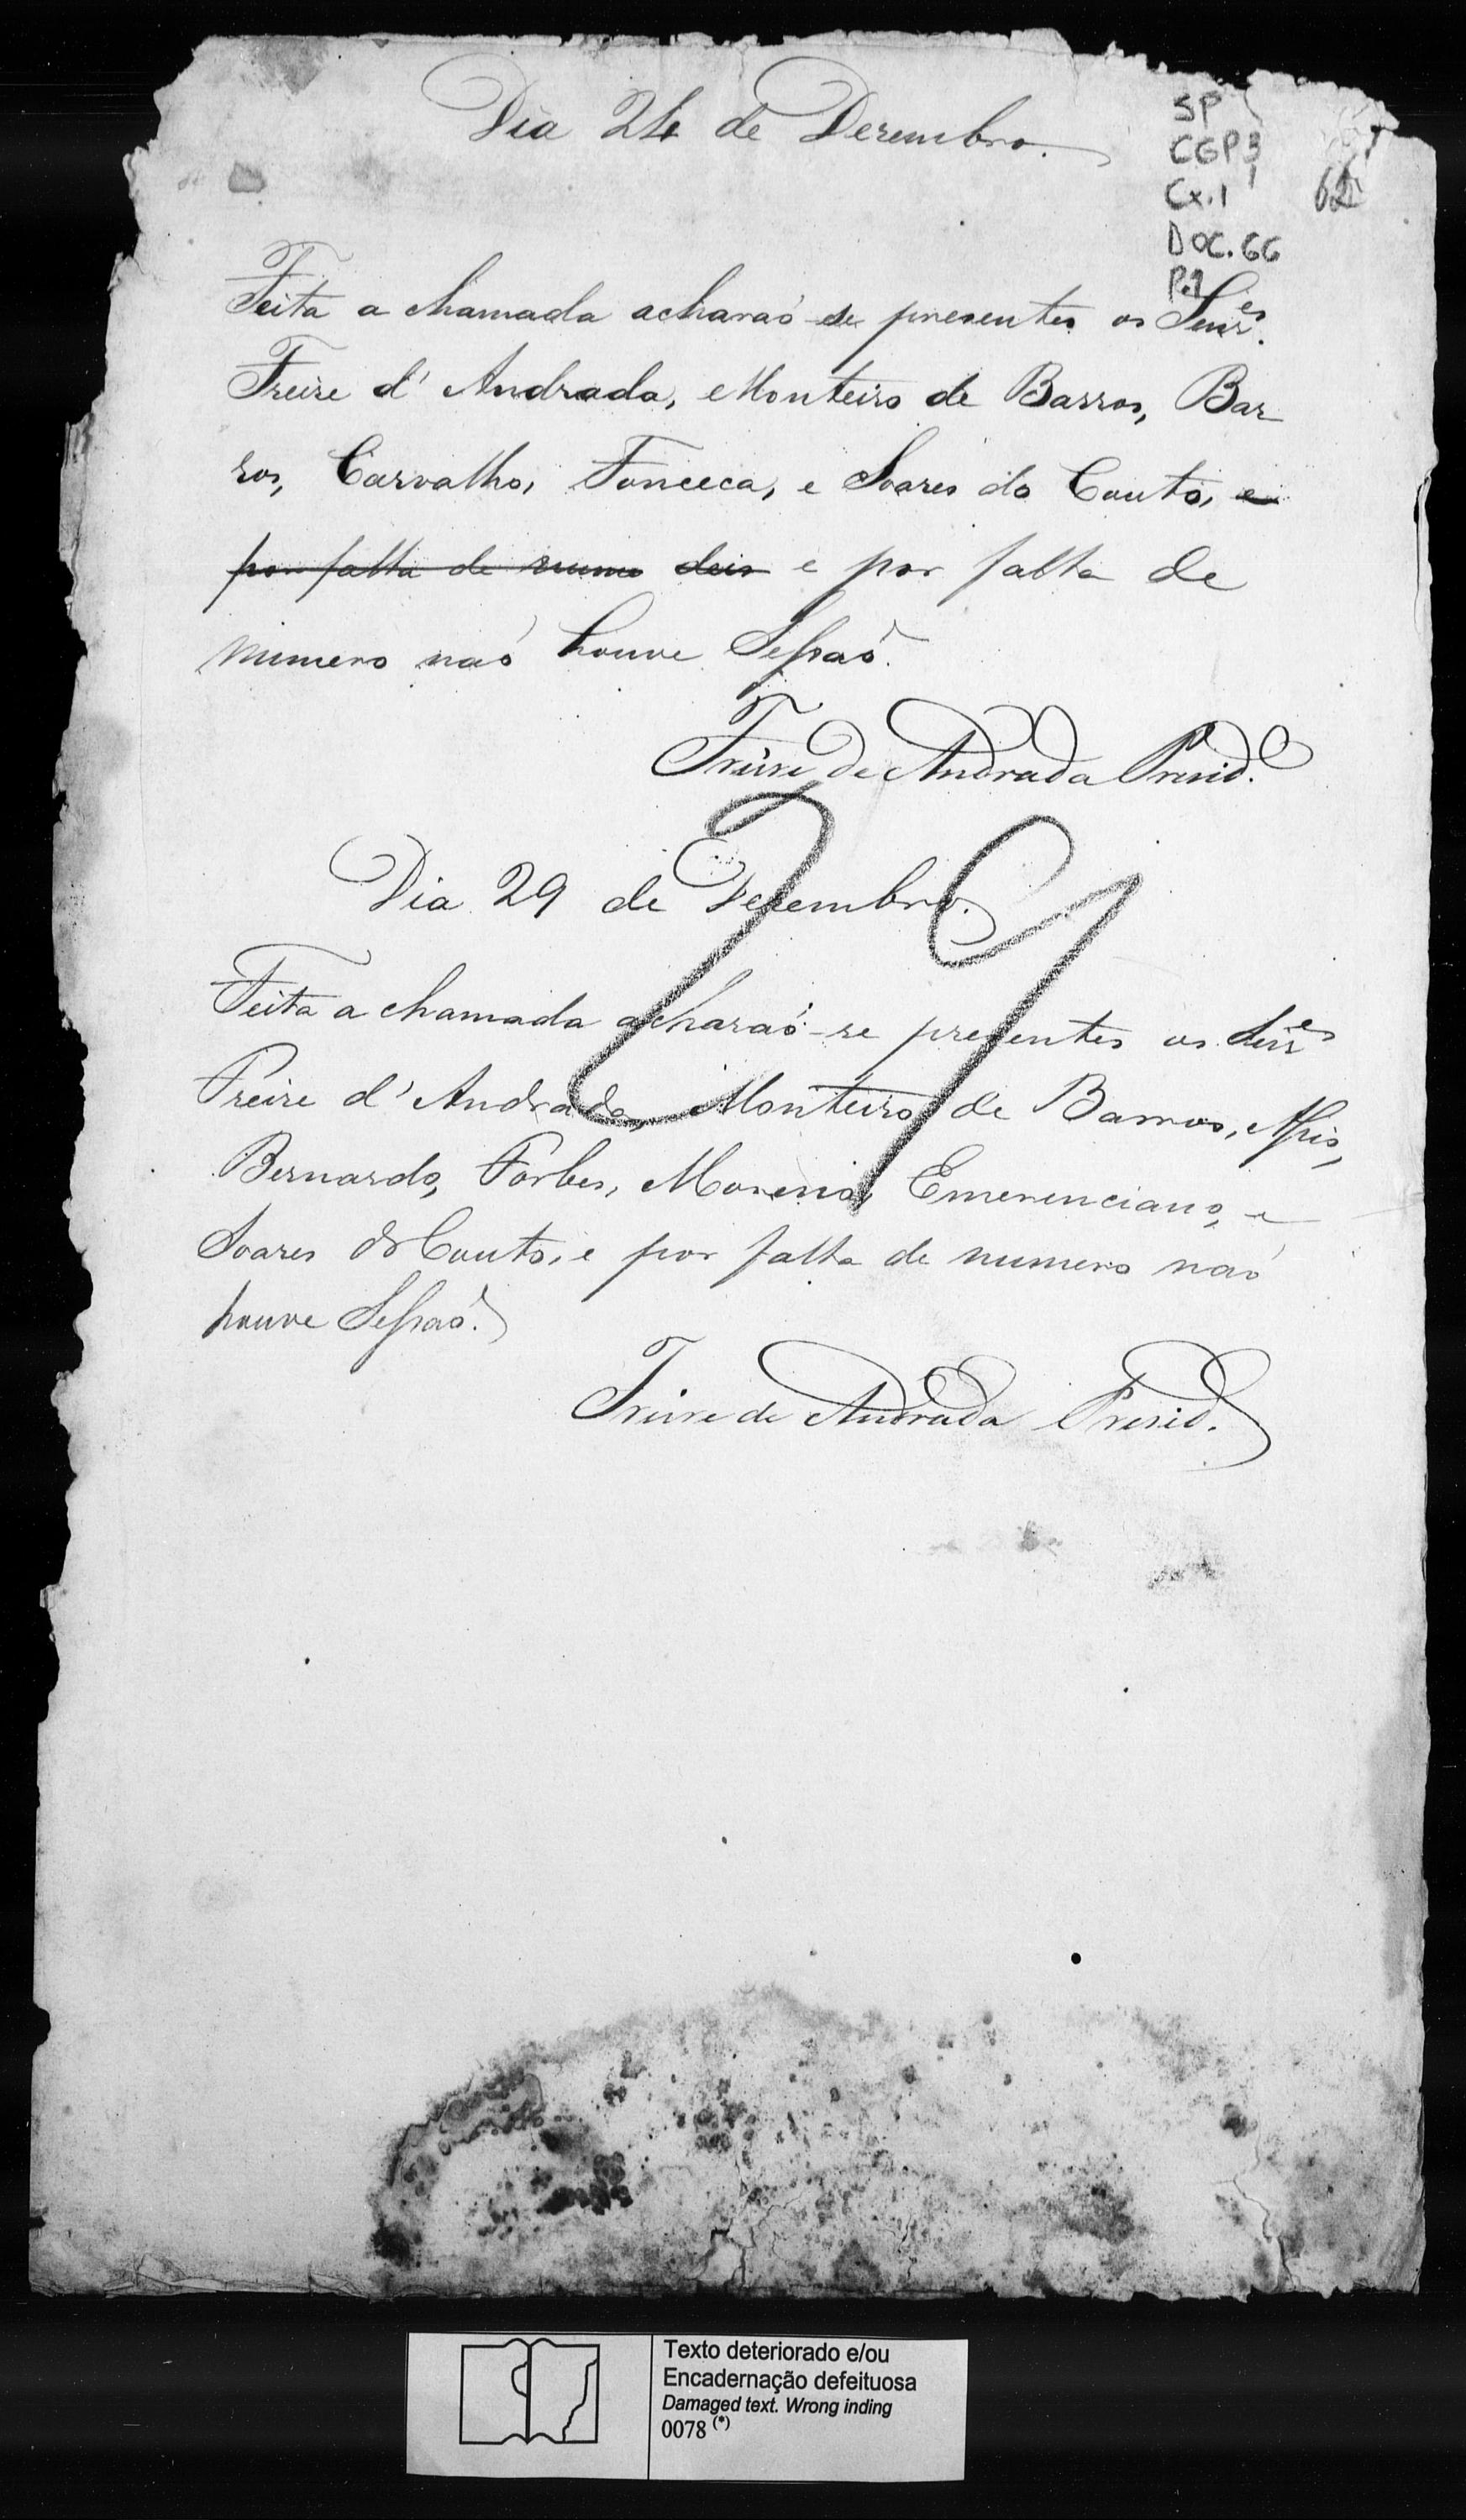 Dia 24 de Dezembro.
SP
CGP3
Cx.1
DOC.66
P.1
62
Feita a chamada acharaõ-se presentes os Senr.es
Freire d'Andrada, Monteiro de Barros, Bar-
ros, Carvalho, Fonceca, e Soares do Couto, e
por falta de nume deis e por falta de
numero naõ houve Sessaõ.
Freire de Andrada Presid.e
Dia 29 de Dezembro.
Feita a chamada acharaõ-se presentes os Senr.es
Freire d'Andrada, Monteiro de Barros,
Bernardo, Forbes, Moreira, Emerenciano, e
Soares do Couto, e por falta de numero naõ
houve Sessaõ.
Freire de Andrada Presid.
Texto deteriorado e/ou
Encadernação defeituosa
Damaged text. Wrong inding
0078 (*)